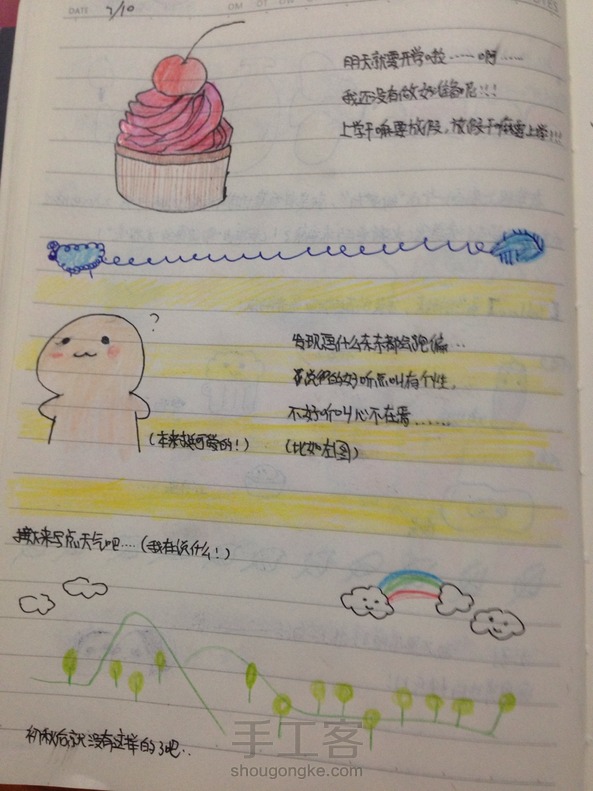 DATE
NOTES
明天就要开学啦……啊……
我还没有做好准备呢!!!
上学干嘛要放假,放假干嘛要上学!!!
?
发现画什么东东都会跑偏…
说的好听点叫有个性,
不好听叫心不在焉……
(本来挺可爱的!) (比如左图)
接下来写点天气吧….(我在说什么!)
初秋后就没有这样的了吧..
手工客
shougongke.com